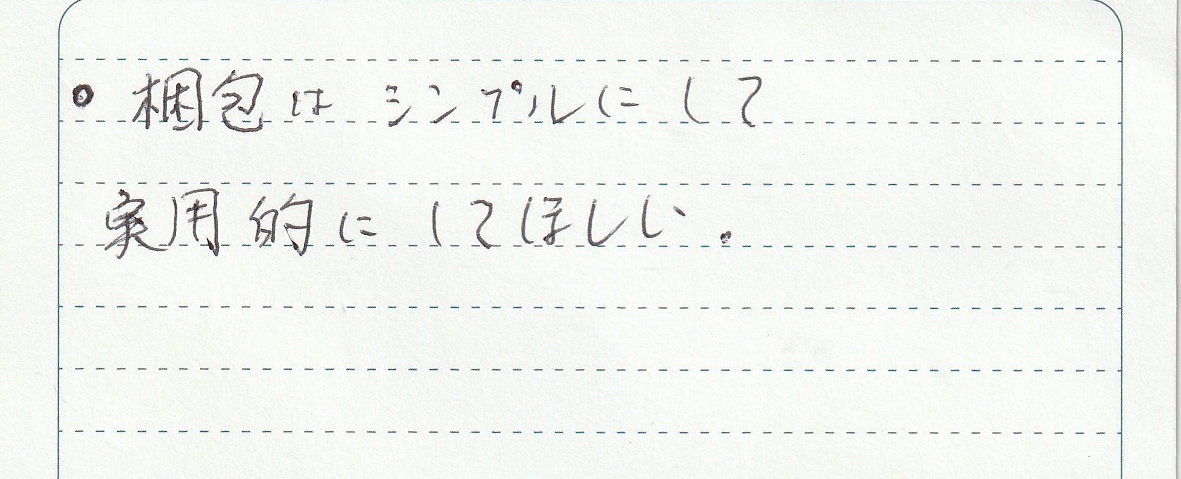 • 梱包は シンプルにして
実用的にしてほしい.